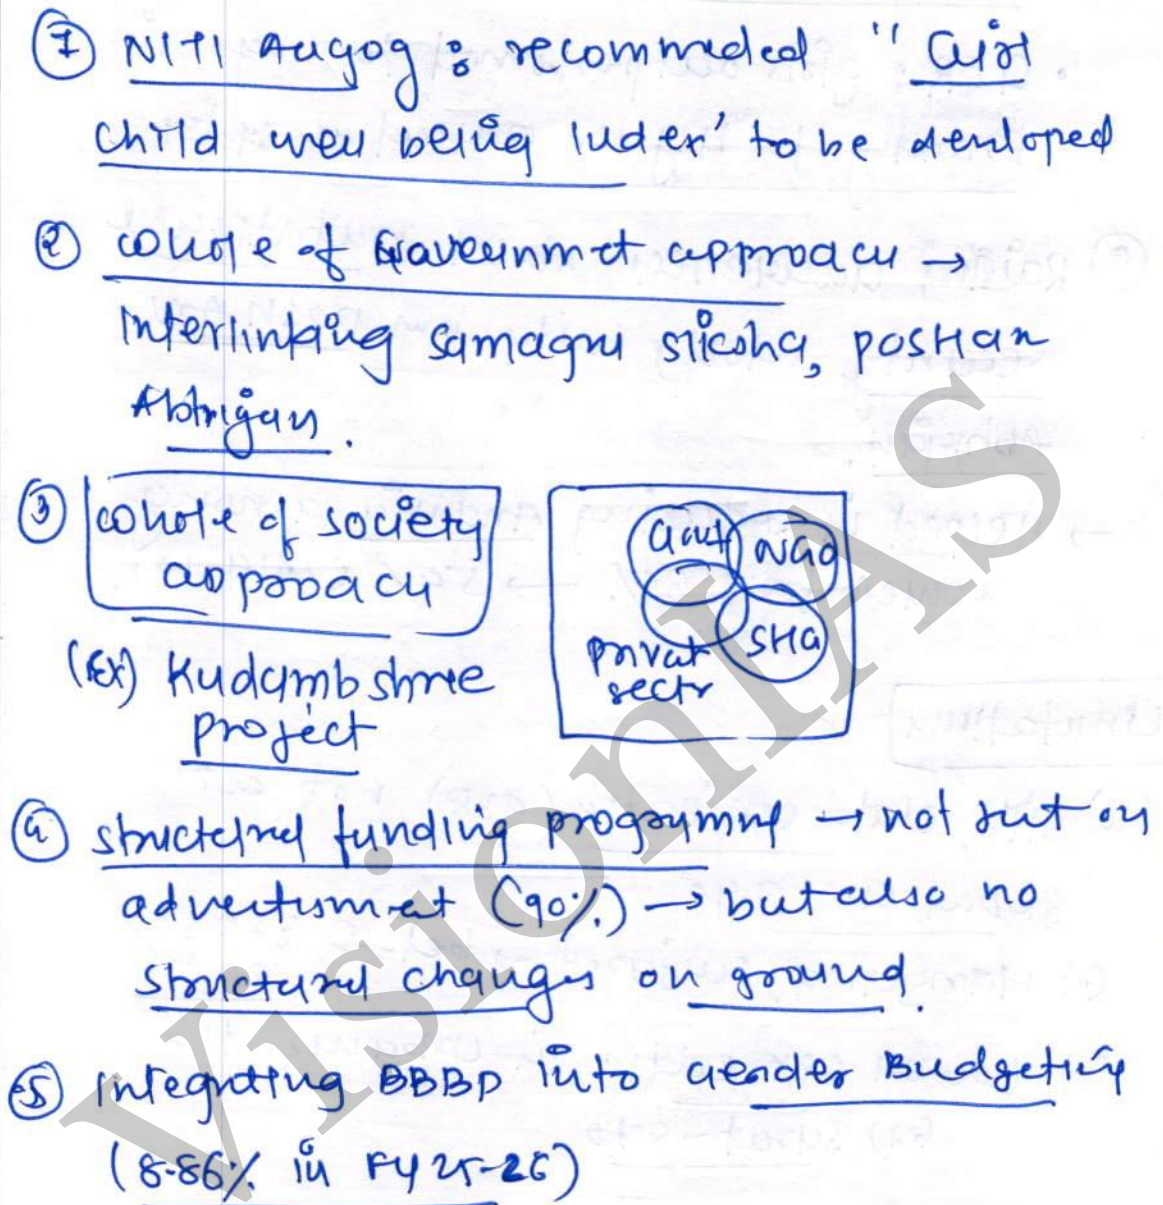 ① NITI Aayog : recommended "Girl
child well being Index' to be developed
② whole of Government approach →
Interlinking Samagra Shiksha, POSHAN
Abhiyan.
③ whole of society
approach
Govt NGO
SHG
private
sectr
(Ex) Kudumbshree
project
④ structured funding programme → not just on
advertisment (90%) → but also no
structural changes on ground.
⑤ Integrating BBBP into Gender Budgeting
(8.86% in FY 25-26)
VisionIAS